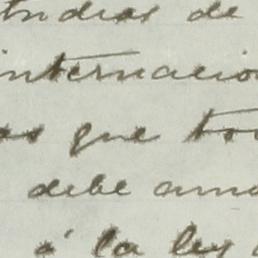 tudias de
internacio
as que to
debe
á la ley